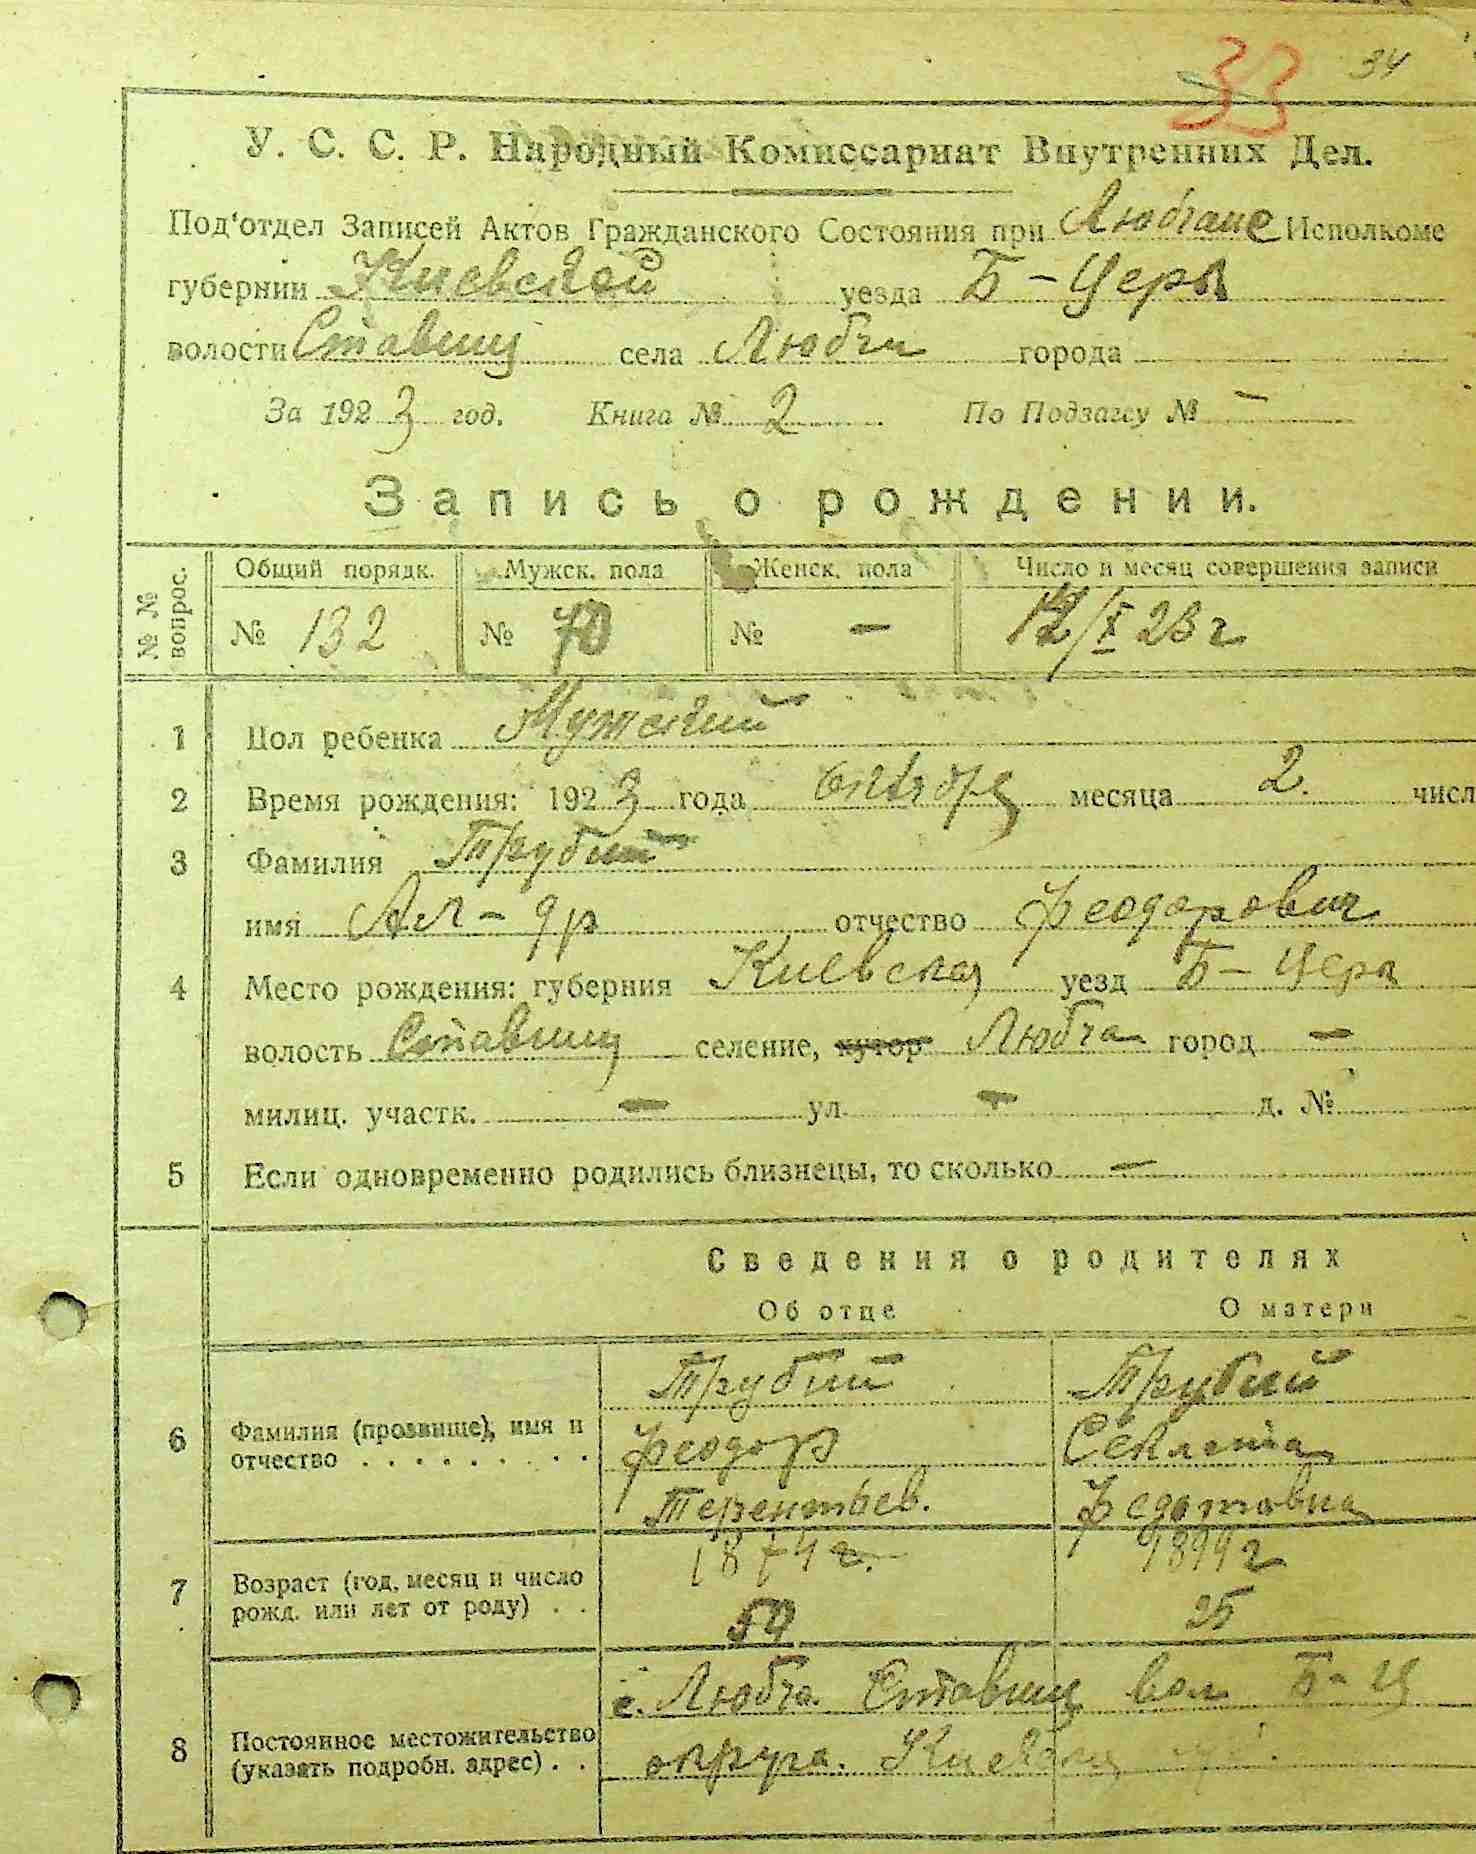 33 34
У. С. С. Р. Народный Комиссариат Внутренних Дел.
Под'отдел Записей Актов Гражданского Состояния при Исполкоме
губернии Киевской уезда Б-Церк
волости Ставищ села Любчи города
За 1923 год. Книга № 2 По Подзагсу № -
Запись о рождении.
№ № вопрос. Общий порядк. Мужск. пола Женск. пола Число и месяц совершения записи
№ 132 № 70 № - 12/X 23 г
1 Пол ребенка Мужский
2 Время рождения: 1923 года октября месяца 2. числ
3 Фамилия Трубий
имя Ал-др отчество Феодорович
4 Место рождения: губерния Киевская уезд Б-Церк
волость Ставищ селение, хутор Любча город -
милиц. участк. - ул. - д. №
5 Если одновременно родились близнецы, то сколько -
Сведения о родителях
Об отце О матери
Трубий Трубий
6 Фамилия (прозвище), имя и Феодор Секлета
отчество . . . . . . . . . .
Терентьев. Федотовна
1874 г. 1899 г
7 Возраст (год, месяц и число
рожд. или лет от роду) . . 25
с. Любча Ставищ вол Б-Ц
8 Постоянное местожительство округа. Киевской
(указать подробн. адрес) . .